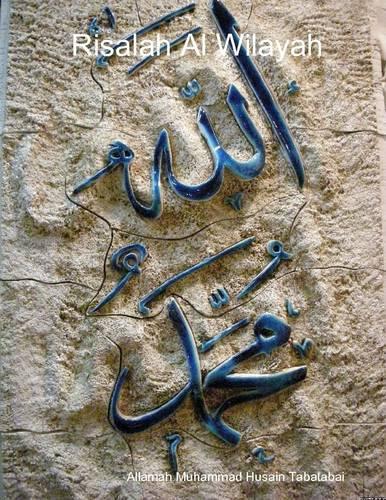 Risalah Al Wilayah
الله
محمد
Allamah Muhammad Husain Tabatabai